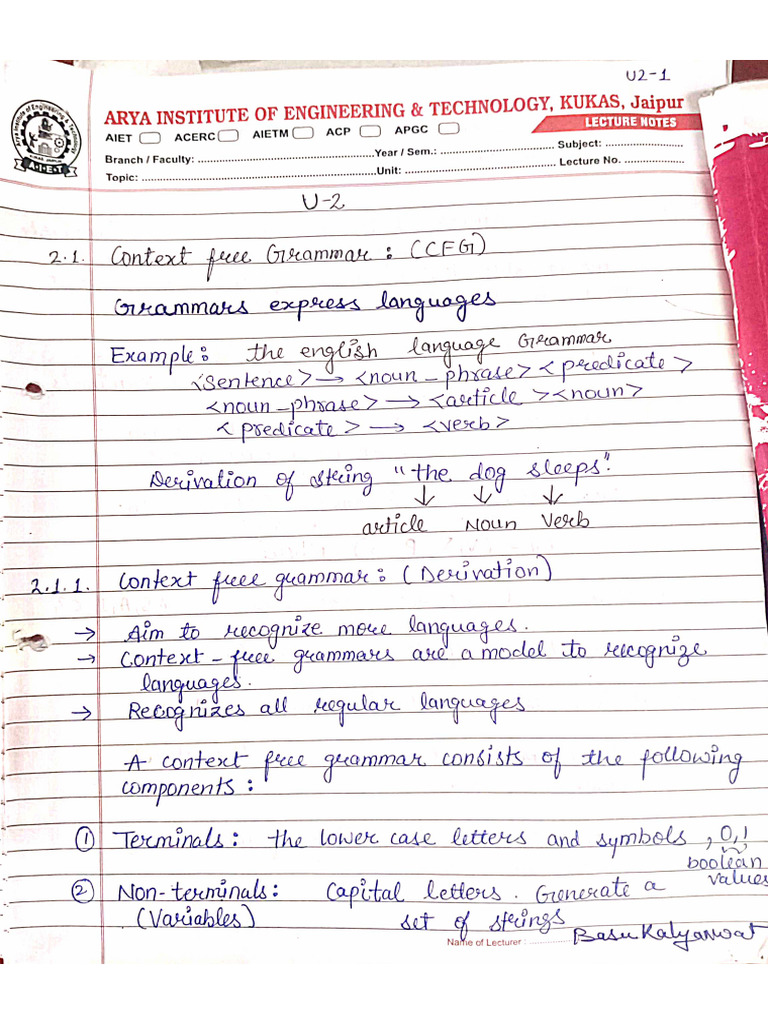 U2-1
ARYA INSTITUTE OF ENGINEERING & TECHNOLOGY, KUKAS, Jaipur
AIET ACERC AIETM ACP APGC
LECTURE NOTES
Branch / Faculty: Year / Sem.: Subject:
Topic: Unit: Lecture No.
Arya Institute of Engineering & Technology
A.I.E.T
U-2
2.1. Context free Grammar : (CFG)
Grammars express languages
Example: the english language Grammar
<sentence> → <noun_phrase> <predicate>
<noun_phrase> → <article> <noun>
<predicate> → <verb>
Derivation of string "the dog sleeps".
↓ ↓ ↓
article Noun Verb
2.1.1. Context free grammar: (Derivation)
→ Aim to recognize more languages.
→ Context-free grammars are a model to recognize
languages.
→ Recognizes all regular languages
A context free grammar consists of the following
components:
① Terminals: the lower case letters and symbols, 0,1
boolean
values
② Non-terminals: Capital letters. Generate a
(Variables) set of strings
Name of Lecturer : Basu Kalyanwat